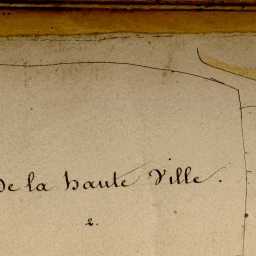 De la haute Ville.
2.